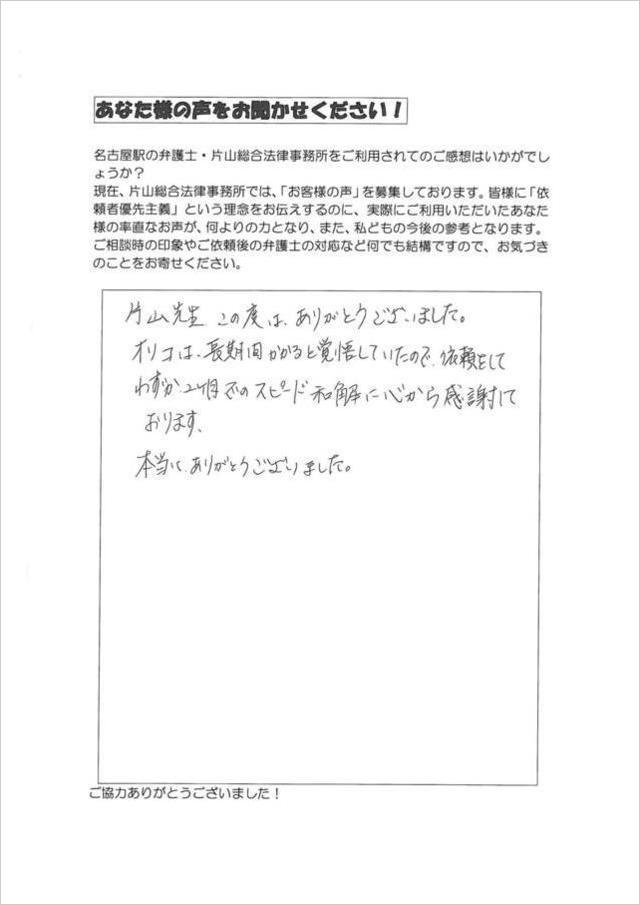 あなた様の声をお聞かせください！
名古屋駅の弁護士・片山総合法律事務所をご利用されてのご感想はいかがでしょ
ょうか？
現在、片山総合法律事務所では、「お客様の声」を募集しております。皆様に「依
頼者優先主義」という理念をお伝えするのに、実際にご利用いただいたあなた
様の率直なお声が、何よりの力となり、また、私どもの今後の参考となります。
ご相談時の印象やご依頼後の弁護士の対応など何でも結構ですので、お気づき
のことをお寄せください。
片山先生 この度は、ありがとうございました。
オリコは、長期間かかると覚悟していたので、依頼をして
わずか2ヶ月でのスピード和解に心から感謝して
おります、
本当に、ありがとうございました。
ご協力ありがとうございました！